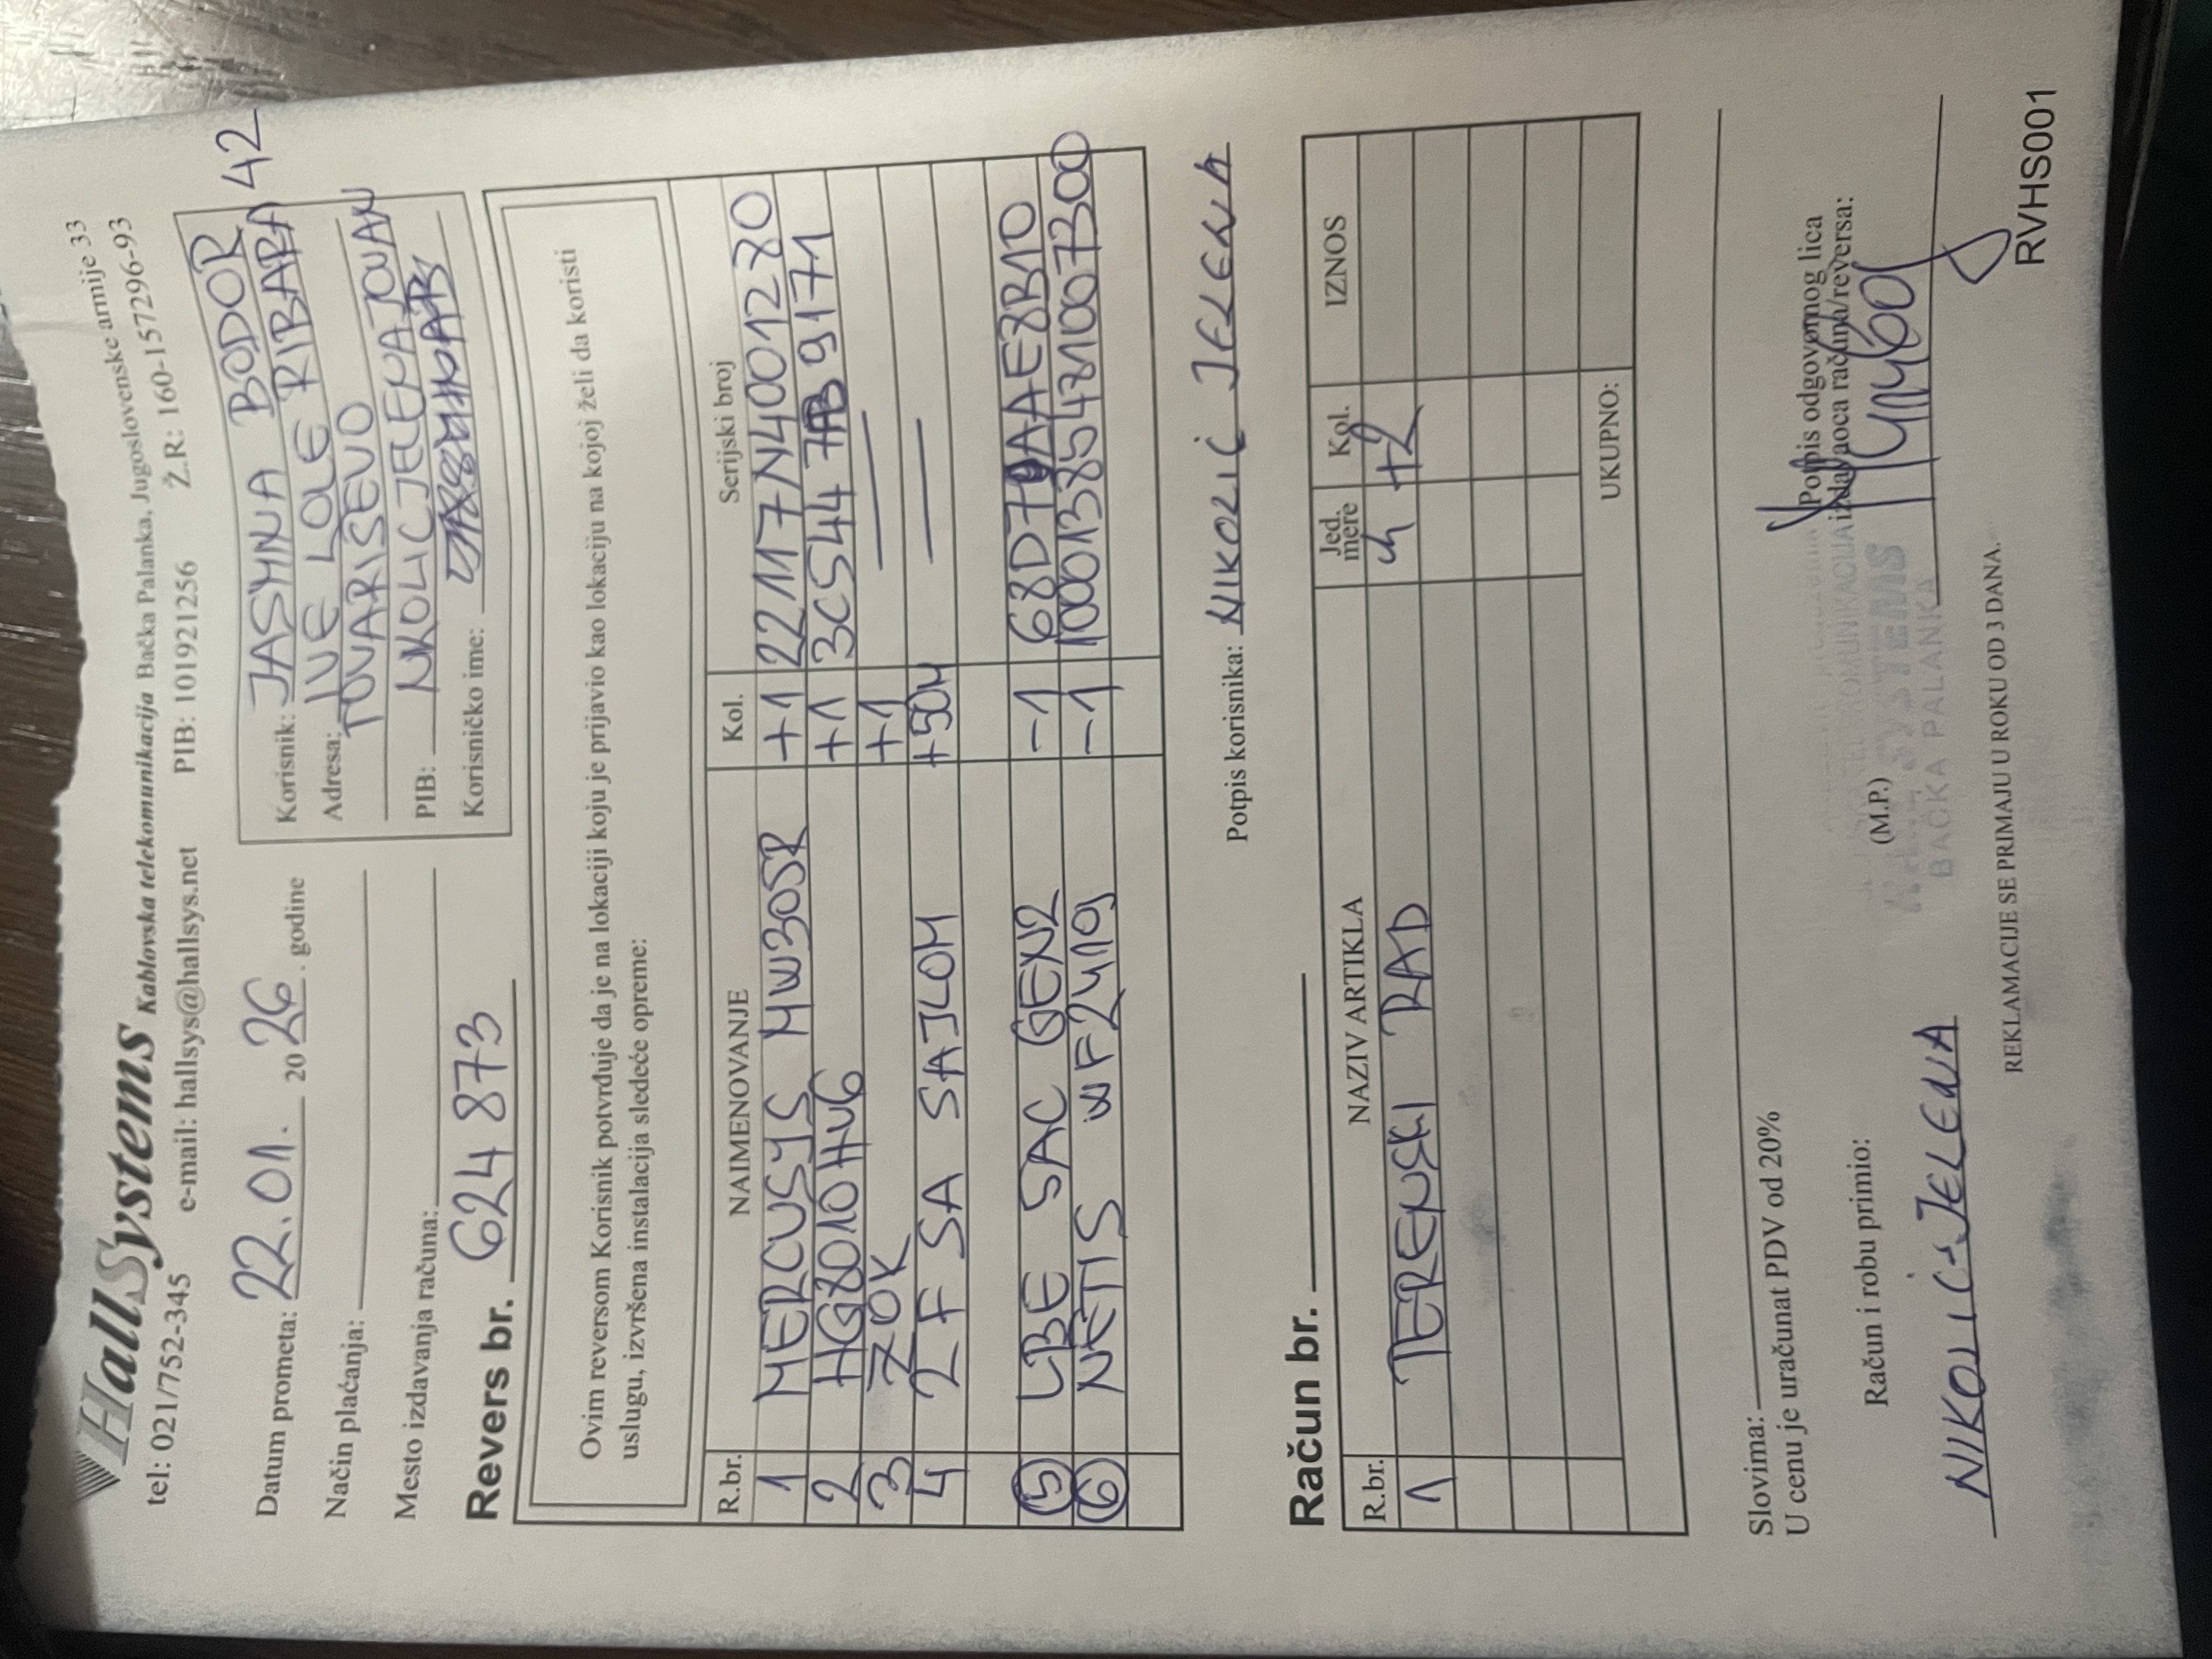 HallSystems Kablovska telekomunikacija Bačka Palanka, Jugoslovenske armije 33
tel: 021/752-345 e-mail: hallsys@hallsys.net PIB: 101921256 Ž.R: 160-157296-93
Datum prometa: 22.01. 2026. godine
Način plaćanja:
Mesto izdavanja računa:
Korisnik: JASMINA BODOR
Adresa: IVE LOLE RIBARA 42
TOVARISEVO
PIB: NIKOLIC JELENA JOVAN
Korisničko ime:
Revers br. 624 873
Ovim reversom Korisnik potvrđuje da je na lokaciji koju je prijavio kao lokaciju na kojoj želi da koristi
uslugu, izvršena instalacija sledeće opreme:
R.br. NAIMENOVANJE Kol. Serijski broj
1 MERCUSYS MW305R +1 22117N4001280
2 HG8010HV6 +1 3C5447AB9171
3 ZOK +1 —
4 2F SA SAJLOM +50M —
5 LBE 5AC GEN2 -1 68D79AAE8B10
6 NETIS WF2419 -1 100013854781007300
Potpis korisnika: NIKOLIĆ JELENA
Račun br.
R.br. NAZIV ARTIKLA Jed. mere Kol. IZNOS
1 TERENSKI RAD h +2
UKUPNO:
Slovima:
U cenu je uračunat PDV od 20%
Račun i robu primio:
(M.P.)
Potpis odgovornog lica
izdavaoca računa/reversa:
NIKOLIĆ JELENA
BAČKA PALANKA
REKLAMACIJE SE PRIMAJU U ROKU OD 3 DANA.
RVHS001